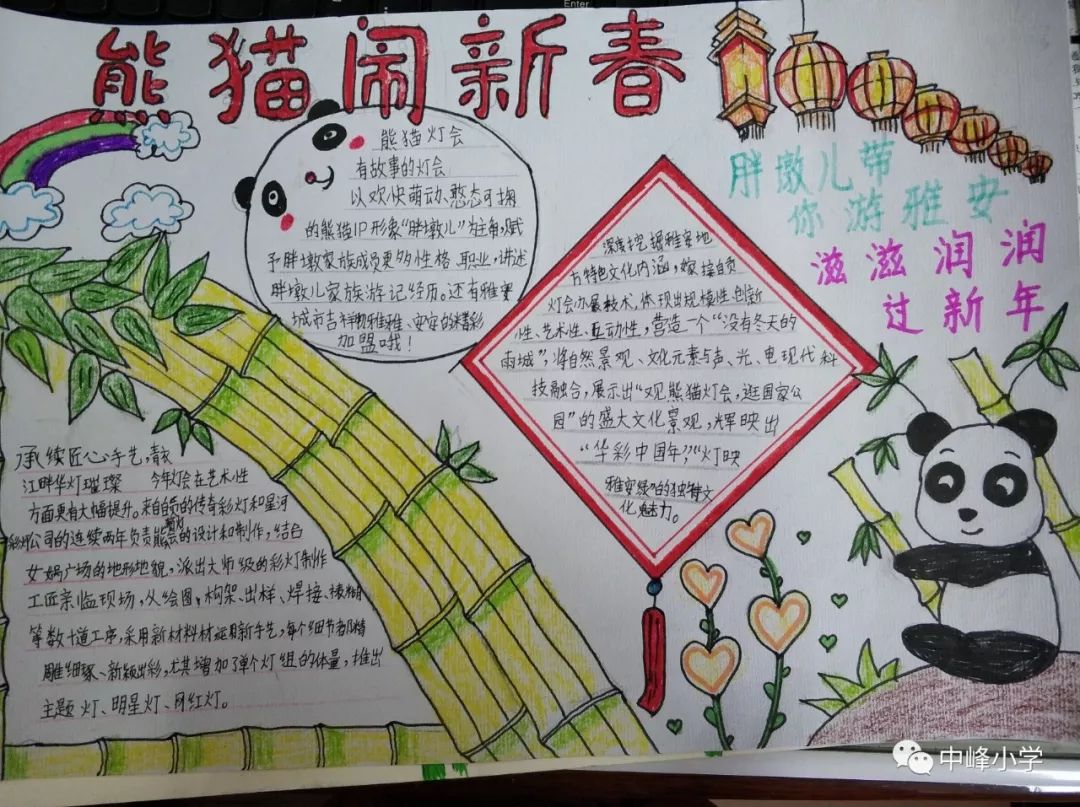 熊猫闹新春
熊猫灯会
有故事的灯会
以欢快萌动、憨态可掬
的熊猫IP形象"胖墩儿"为主角,赋
予胖墩家族成员更多性格、职业,讲述
胖墩儿家族游记经历。还有雅安
城市吉祥物雅雅、安安的精彩
加盟哦!
胖墩儿带
你游雅安
滋滋润润
过新年
深度挖掘雅安地
方特色文化内涵,嫁接自贡
灯会办展技术,体现出规模性、创新
性、艺术性、互动性,营造一个"没有冬天的
雨城",将自然景观、文化元素与声、光、电现代科
技融合,展示出"观熊猫灯会,逛国家公
园"的盛大文化景观,辉映出
"华彩中国年""灯映
雅安绿"的独特文
化魅力。
承续匠心手艺,青衣
江畔华灯璀璨 今年灯会在艺术性
方面更有大幅提升。来自自贡的传奇彩灯和星河
彩灯公司的连续两年负责熊猫灯会的设计和制作,结合
女娲广场的地形地貌,派出大师级的彩灯制作
工匠亲临现场,从绘图、构架、出样、焊接、裱糊
等数十道工序,采用新材料材运用新手艺,每个细节都精
雕细琢、新颖出彩,尤其增加了单个灯组的体量,推出
主题灯、明星灯、网红灯。
中峰小学
Enter